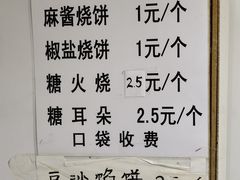 麻酱烧饼 1元/个
椒盐烧饼 1元/个
糖火烧 2.5元/个
糖耳朵 2.5元/个
口袋收费
豆沙馅饼